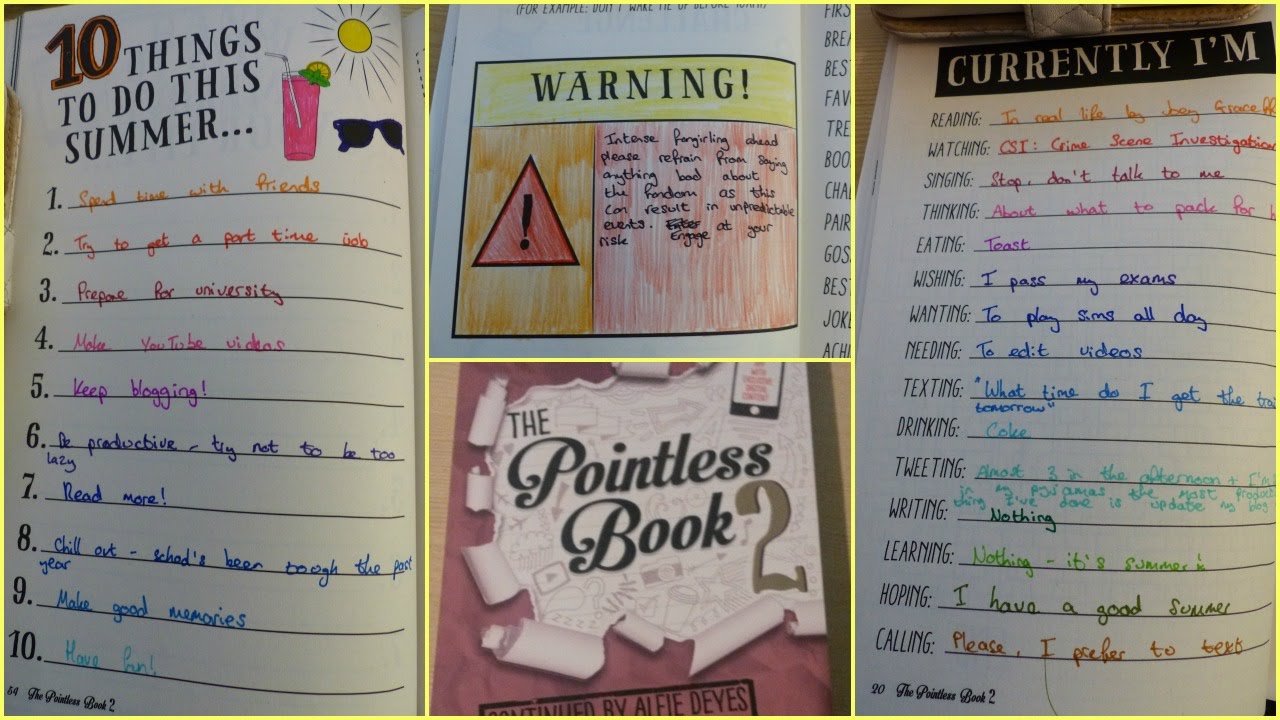 10 THINGS
TO DO THIS
SUMMER...
1. Spend time with friends
2. Try to get a part time job
3. Prepare for university
4. Make YouTube videos
5. Keep blogging!
6. Be productive - try not to be too
lazy
7. Read more!
8. Chill out - school's been tough the past
year
9. Make good memories
10. Have fun!
54 The Pointless Book 2
(FOR EXAMPLE: DON'T WAKE ME UP BEFORE 10AM!)
WARNING!
Intense fangirling ahead
please refrain from saying
anything bad about
the fandom as this
can result in unpredictable
events. Enter at your
risk Engage
FIRS
BREA
BEST
FAV
TRE
BOO
CHA
PAIR
GOS
BEST
JOKE
ACHI
WITH
EXCLUSIVE
DIGITAL
CONTENT
THE
Pointless
Book 2
CONTINUED BY ALFIE DEYES
CURRENTLY I'M
READING: In real life by Joey Graceffa
WATCHING: CSI: Crime Scene Investigation
SINGING: Stop, don't talk to me
THINKING: About what to pack for h
EATING: Toast
WISHING: I pass my exams
WANTING: To play sims all day
NEEDING: To edit videos
TEXTING: "What time do I get the trai
tomorrow"
DRINKING: Coke
TWEETING: Almost 3 in the afternoon + I'm
in my pyjamas is the most product
thing I've done is update my blog
WRITING: Nothing
LEARNING: Nothing - it's summer
HOPING: I have a good summer
CALLING: Please, I prefer to text
20 The Pointless Book 2